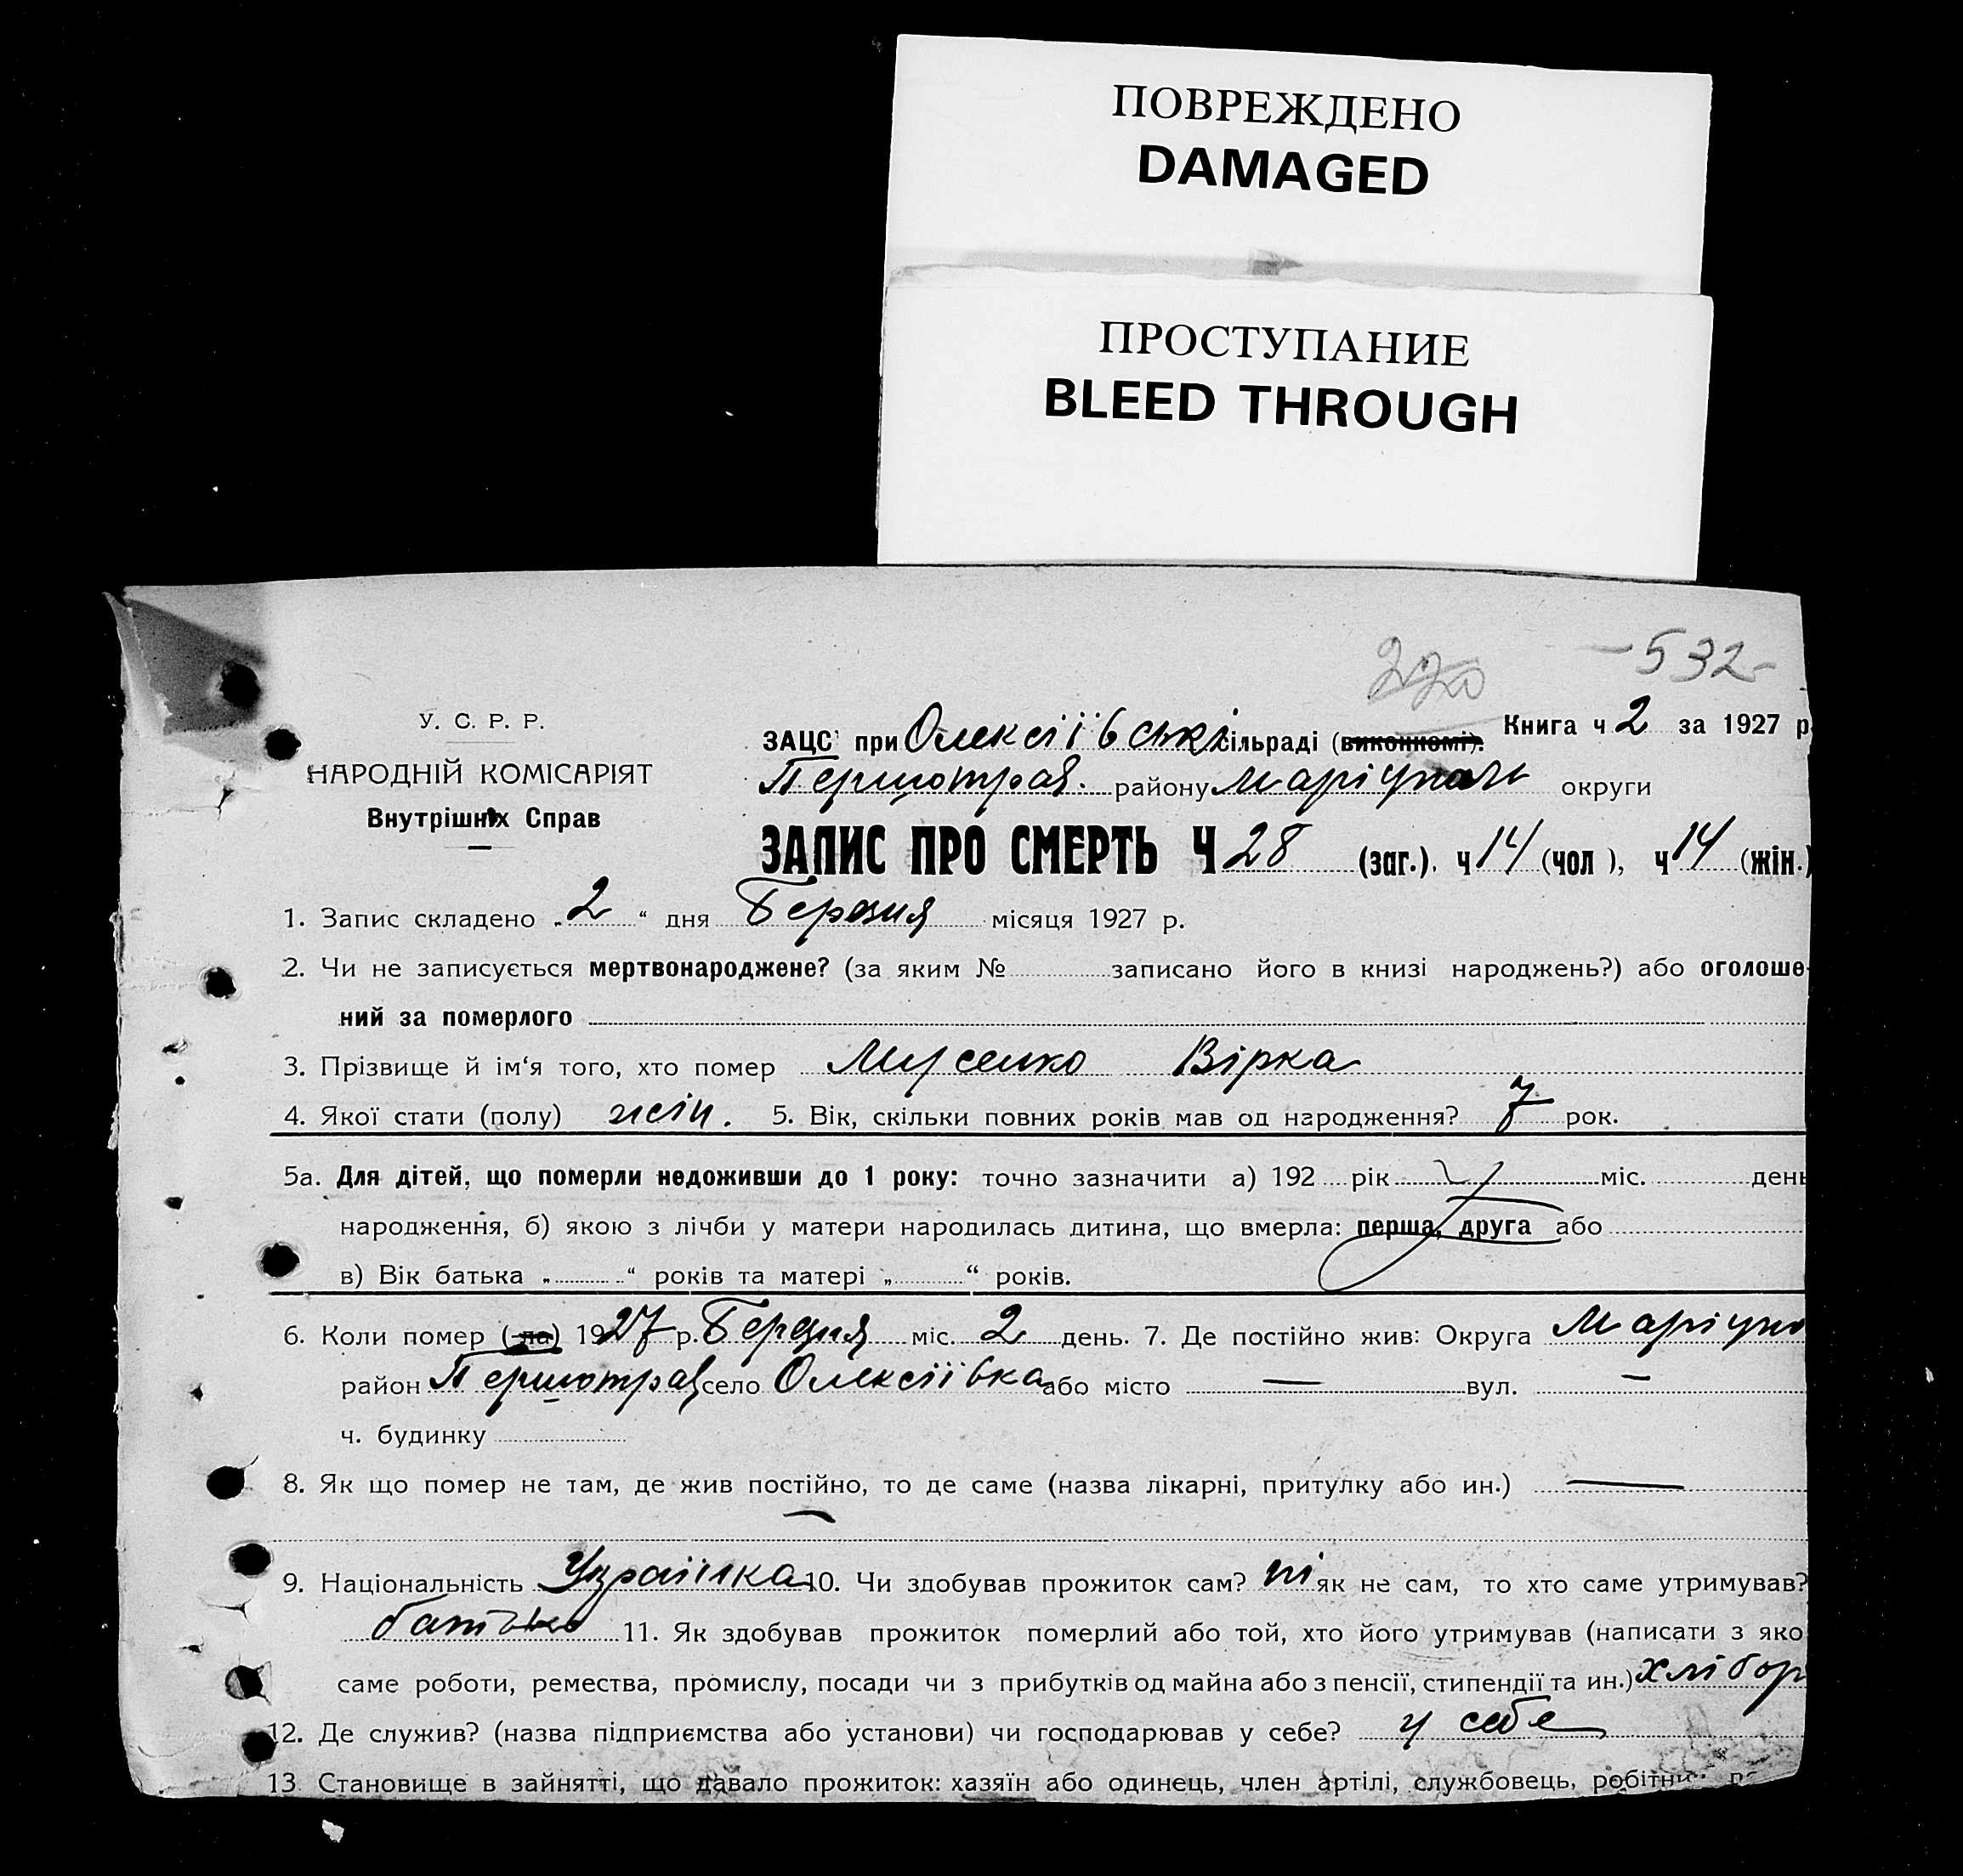 ПОВРЕЖДЕНО
DAMAGED
ПРОСТУПАНИЕ
BLEED THROUGH
220 -532-
У. С. Р. Р.
НАРОДНІЙ КОМІСАРІЯТ
Внутрішніх Справ
Книга ч 2 за 1927 р
ЗАЦС при Олексіївські сільраді (виконкомі).
Першотрав. району Маріуполь округи
ЗАПИС ПРО СМЕРТЬ Ч 28 (заг.), ч 14 (чол ), ч 14 (жін.)
1. Запис складено „2“ дня Березня місяця 1927 р.
2. Чи не записується мертвонароджене? (за яким № записано його в книзі народжень?) або оголоше-
ний за померлого
3. Прізвище й ім‘я того, хто помер Вірка
4. Якої стати (полу) жін. 5. Вік, скільки повних років мав од народження? 7 рок.
5а. Для дітей, що померли недоживши до 1 року: точно зазначити а) 192 рік міс. день
народження, б) якою з лічби у матери народилась дитина, що вмерла: перша, друга або
в) Вік батька „ “ років та матері „ “ років.
6. Коли помер (-ла) 1927 р. Березня міс. 2 день. 7. Де постійно жив: Округа Маріупо
район Першотрав село Олексіївка або місто — вул. —
ч. будинку
8. Як що помер не там, де жив постійно, то де саме (назва лікарні, притулку або ин.) —
—
9. Національність Українка 10. Чи здобував прожиток сам? ні як не сам, то хто саме утримував?
батько 11. Як здобував прожиток померлий або той, хто його утримував (написати з яко
саме роботи, ремества, промислу, посади чи з прибутків од майна або з пенсії, стипендії та ин.) хлібор
12. Де служив? (назва підприємства або установи) чи господарював у себе? у себе
13 Становище в зайнятті, що давало прожиток: хазяїн або одинець, член артілі, службовець, робітни